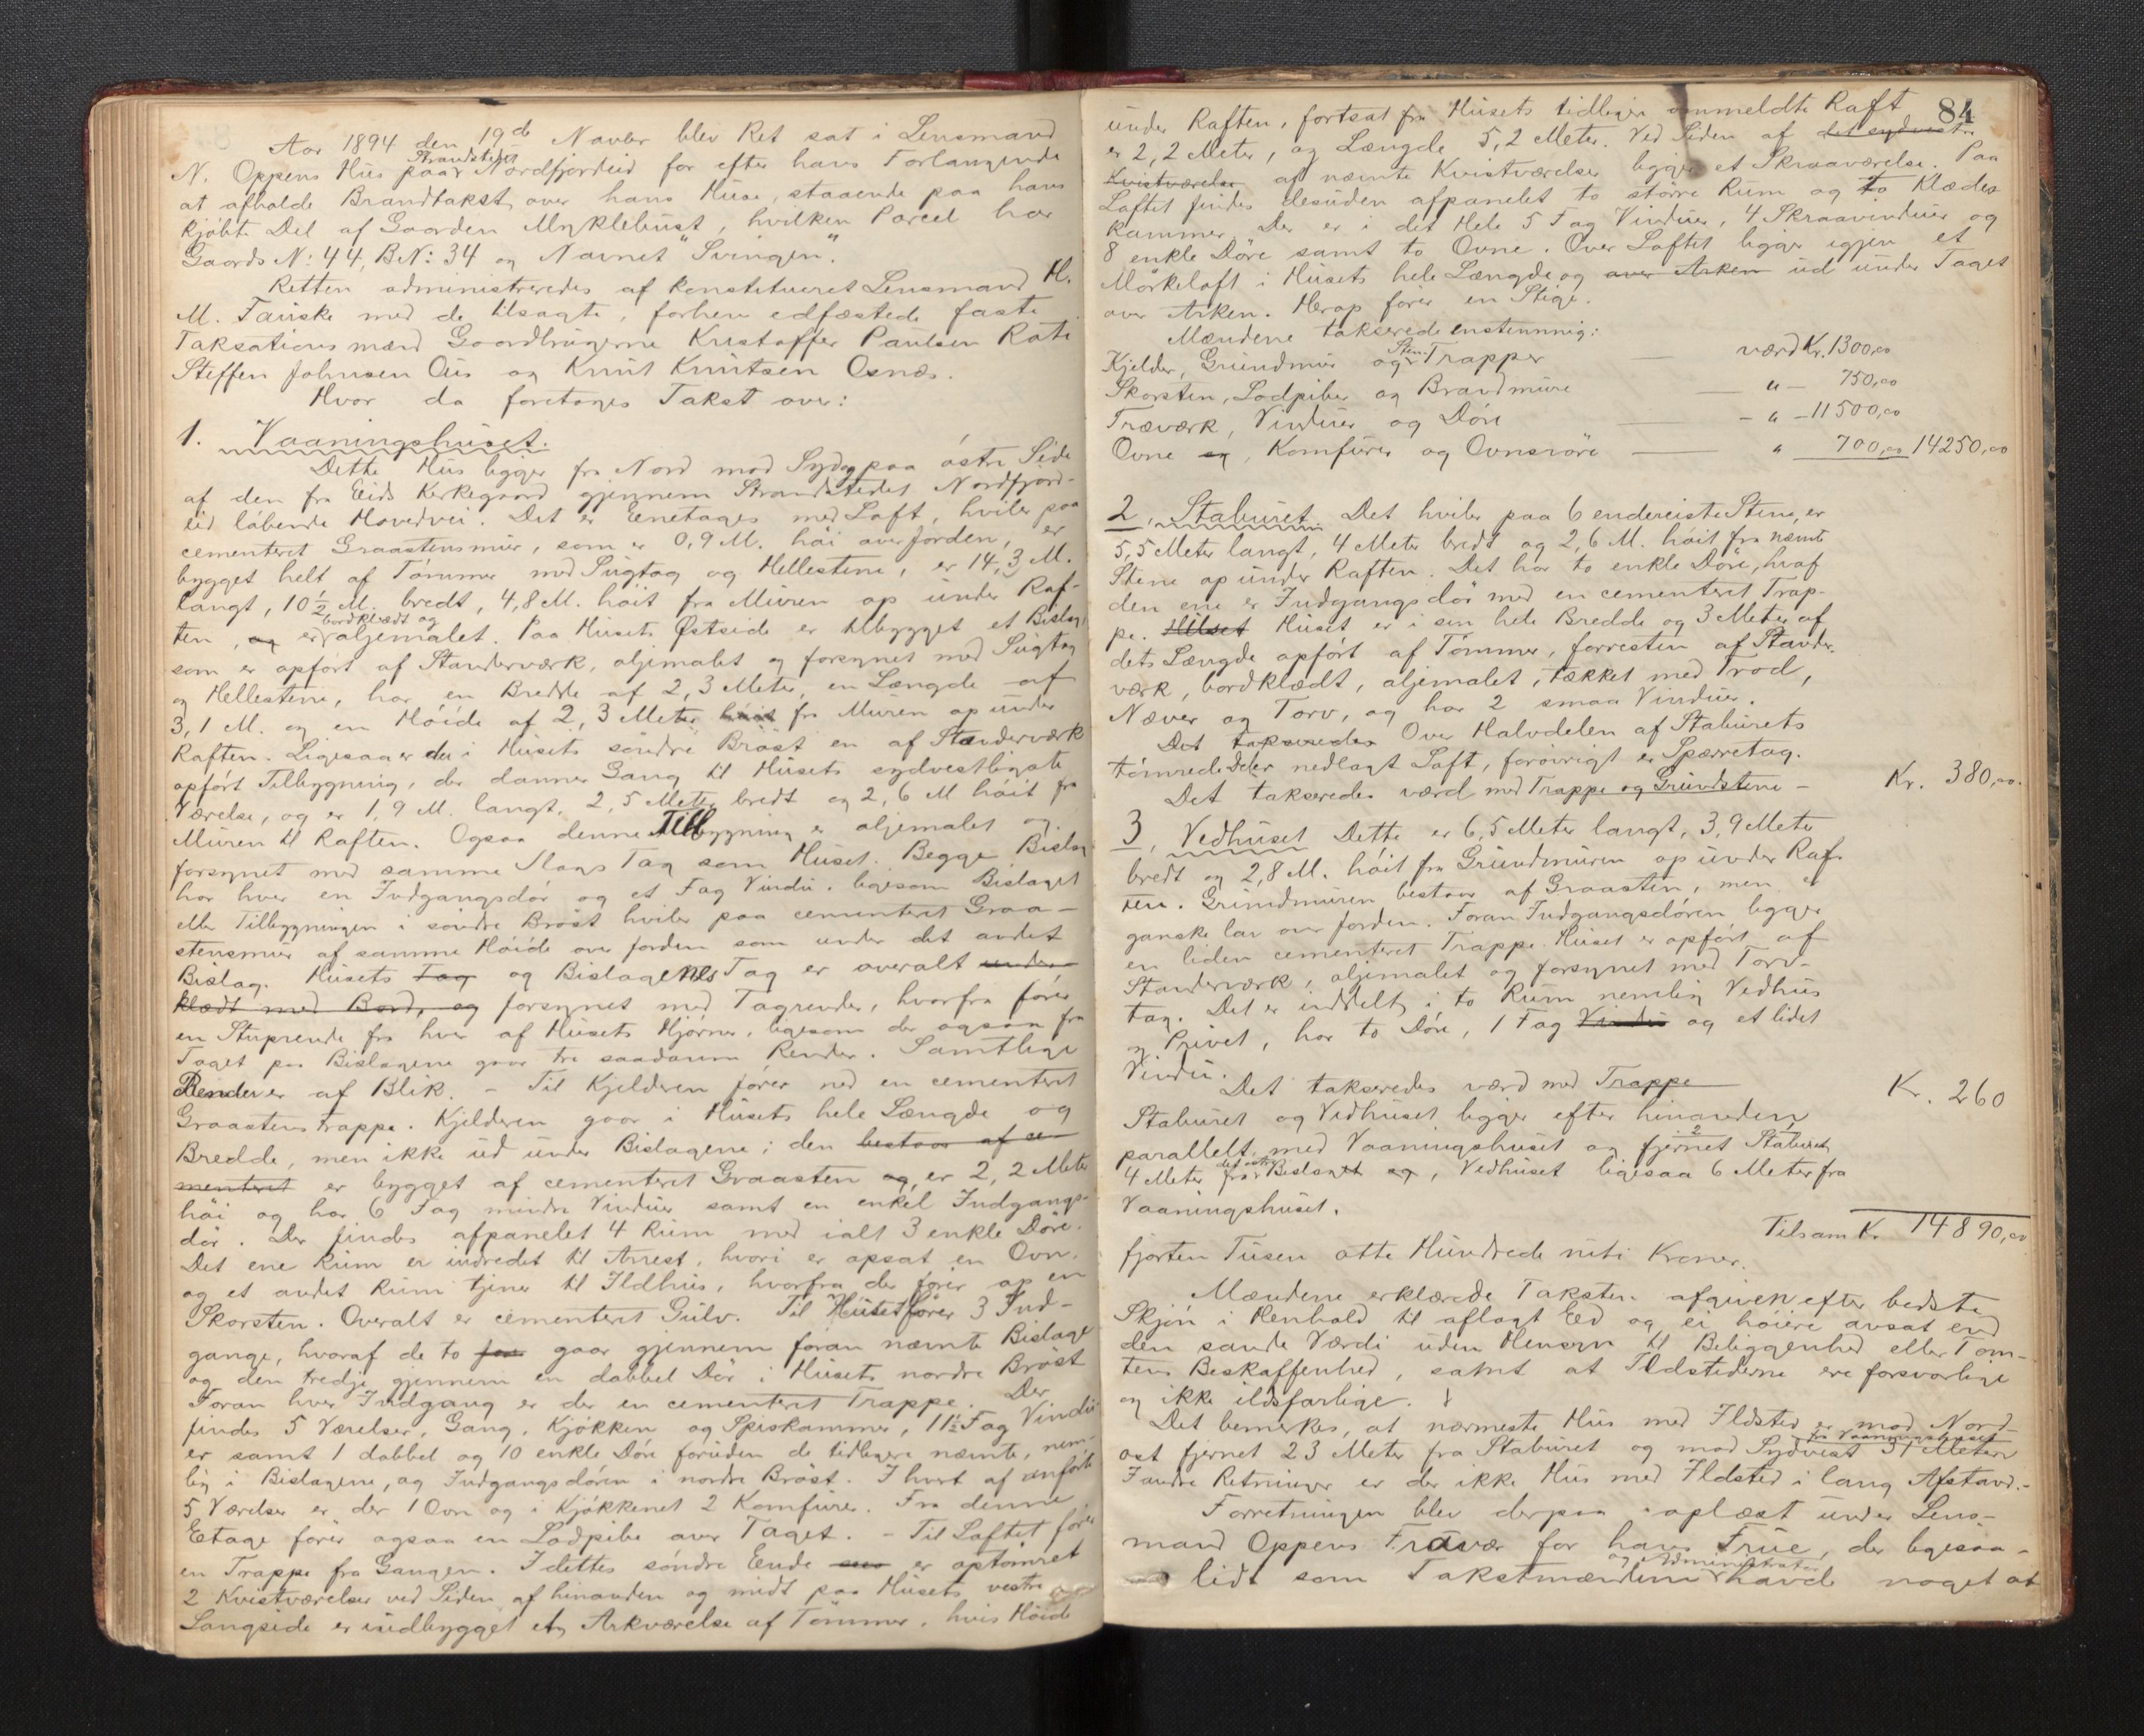 Aar 1894 den 19de Novbr blev Ret sat i Lensmand
N. Oppens Hus paa Strandstedet Nordfjordeid for efter hans Forlangende
at afholde Brandtakst over hans Huse, staaende paa hans
kjöbte Del af Gaarden Myklebust, hvilken Parcel har
Gaards No: 44, B.No: 34 og Navnet "Svingen".
Retten administreredes af konstitueret Lensmand H.
M. Fauske med de tilsagte, forhen edfæstede faste
Taksationsmænd Gaardbrugerne Kristoffer Paulsen Rote
Steffen Johnsen Ous og Knut Knutsen Osnæs.
Hvor da foretoges Takst over:
1. Vaaningshuset.
Dette Hus ligger fra Nord mod Syd og paa östre Side
af den fra Eids Kirkegaard gjennem Strandstedet Nordfjord-
eid löbende Hovedvei. Det er Eenetages med Loft, hviler paa
cementeret Graastensmur, som er 0,9 M. höi over Jorden, er
bygget helt af Tömmer med Sugtag og Hellestene, er 14,3 M.
langt, 10 1/2 M. bredt, 4,8 M. höit fra Muren op under Raf-
ten, og er bordklædt og oljemalet. Paa Husets Østside er tilbygget et Bislag,
som er opfört af Standerværk, oljemalet og forsynet med Sugtag
og Hellestene, har en Bredde af 2,3 Meter, en Længde af
3,1 M. og en Höide af 2,3 Meter höit fra Muren op under
Raften. Ligesaa er der i Husets söndre Bröst en af Standerværk
opfört Tilbygning, der danner Gang til Husets sydvestligste
Værelse, og er 1,9 M. langt, 2,5 Meter bredt og 2,6 M höit fra
Muren til Raften. Ogsaa denne Tilbygning er oljemalet og
forsynet med samme Slags Tag som Huset. Begge Bislag
har hver en Indgangsdör og et Fag Vindu. ligesom Bislaget
eller Tilbygningen i söndre Bröst hviler paa cementeret Graa-
stensmur af samme Höide over Jorden som under det andet
Bislag. Husets Tag og Bislagenes Tag er overalt under
klædt med Bord, og forsynet med Tagrender, hvorfra förer
en Stuprende fra hver af Husets Hjörner, ligesom der ogsaa fra
Taget paa Bislagene gaar tre saadanne Render. Samtlige
Render er af Blik. - Til Kjelderen förer ned en cementeret
Graastenstrappe. Kjelderen gaar i Husets hele Længde og
Bredde, men ikke ud under Bislagene; den bestaar af ce-
menteret er bygget af cementeret Graasten og, er 2,2 Meter
höi og har 6 Fag mindre Vinduer samt en enkel Indgangs-
dör. Der findes afpanelet 4 Rum med ialt 3 enkle Döre.
Det ene Rum er indredet til Arrest, hvori er opsat en Ovn,
og et andet Rum tjener til Ildhus, hvorfra der förer op en
Skorsten. Overalt er cementeret Gulv. Til Huset förer 3 Ind-
gange, hvoraf de to gaar gjennem foran nævnte Bislage
og den tredje gjennem en dobbel Dör i Husets nordre Bröst
Foran hver Indgang er der en cementeret Trappe. Der
findes 5 Værelser, Gang, Kjökken og Spiskammer, 11 1/2 Fag Vindu-
er samt 1 dobbel og 10 enkle Döre foruden de tidligere nævnte, nem-
lig i Bislagene, og Indgangsdören i nordre Bröst. I hvert af anförte
5 Værelser er der 1 Ovn og i Kjökkenet 2 Komfurer. Fra denne
Etage förer ogsaa en Lodpibe over Taget. - Til Loftet förer
en Trappe fra Gangen. I dettes söndre Ende er optömret
2 Kvistværelser ved Siden af hinanden og midt paa Husets vestre
Langside er indbygget et Arkværelse af Tömmer, hvis Höide
84
under Raften, fortsat fra Husets tidligere ommeldte Raft
er 2,2 Meter, og Længde 5,2 Meter. Ved Siden af det sydvestre
Kvistværelse af nævnte Kvistværelser ligger et Skraaværelse. Paa
Loftet findes desuden afpanelet to större Rum og to Klædes
kammer. Der er i det Hele 5 Fag Vinduer, 4 Skraavinduer og
8 enkle Döre samt to Ovne. Over Loftet ligger igjen et
Mörkeloft i Husets hele Længde og over Arken ud under Taget
over Arken. Herop förer en Stige.
Mændene takserede enstemmig:
Kjelder, Grundmur og Sten Trapper — værd Kr. 1300,00
Skorsten, Lodpiber og Brandmure — " — 750,00
Træværk, Vinduer og Döre — " — 11500,00
Ovne og, Komfurer og Ovnsröre — " 700,00 14250,00
2, Staburet. Det hviler paa 6 endereiste Stene, er
5,5 Meter langt, 4 Meter bredt og 2,6 M. höit fra nævnte
Stene op under Raften. Det har to enkle Döre, hvaf
den ene er Indgangsdör med en cementeret Trap-
pe. Huset er i sin hele Bredde og 3 Meter af
dets Længde opfört af Tömmer, forresten af Stander-
værk, bordklædt, oljemalet, tækket med Trod,
Næver og Torv, og har 2 smaa Vinduer.
Det takseredes Over Halvdelen af Staburets
tömrede Del er nedlagt Loft, forövrigt er Spærretag.
Det takseredes værd med Trappe og Grundstene - Kr. 380,00.
3, Vedhuset Dette er 6,5 Meter langt, 3,9 Meter
bredt og 2,8 M. höit fra Grundmuren op under Raf-
ten. Grundmuren bestaar af Graasten, men er
ganske lav over Jorden. Foran Indgangsdören ligger
en liden cementeret Trappe. Huset er opfört af
Standerværk, oljemalet og forsynet med Torv-
tag. Det er inddelt i to Rum nemlig Vedhus
og Privet, har to Döre, 1 Fag Vindu og et lidet
Vindu.
Det takseredes værd med Trappe Kr. 260
Staburet og Vedhuset ligger efter hinanden,
parallelt med Vaaningshuset og fjernet Staburet
4 Meter fra det östre Bislaget og, Vedhuset ligesaa 6 Meter fra
Vaaningshuset.
Tilsam Kr. 14890,00
fjorten Tusen otte Hundrede niti Kroner.
Mændene erklærede Taksten afgiven efter bedste
Skjön i Henhold til aflagt Eed og ei höiere ansat end
den sande Værdi uden Hensyn til Beliggenhed eller Tom-
tens Beskaffenhed, samt at Ildstederne ere forsvarlige
og ikke ildsfarlige.
Det bemerkes, at nærmeste Hus med Ildsted er mod Nord-
ost fjernet 23 Meter fra Staburet og mod Sydvest fra Vaaningshuset 31 Meter
I andre Retninger er der ikke Hus med Ildsted i lang Afstand.-
Forretningen blev derpaa oplæst under Lens-
mand Oppens Fravær for hans Frue, der ligesaa-
lidt som Takstmændene og Administrator havde noget at